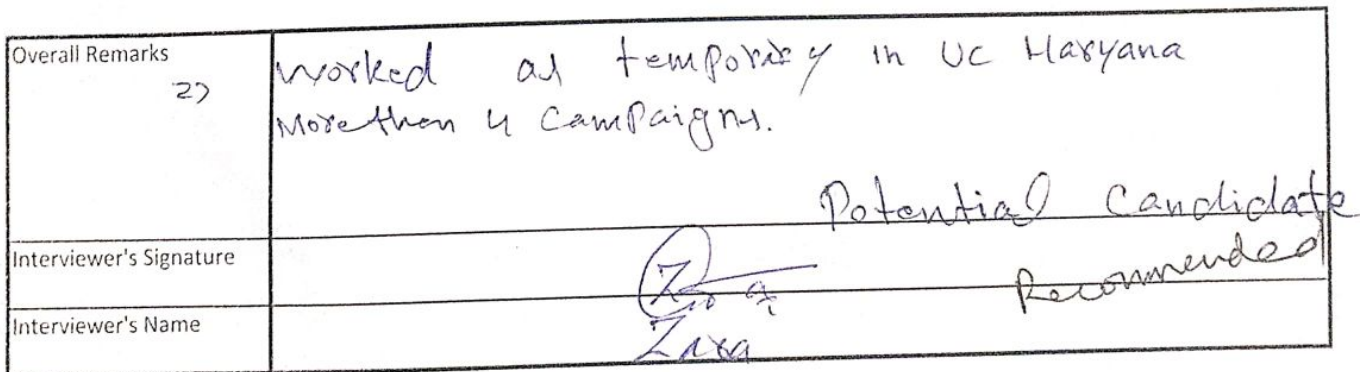 Overall Remarks
worked as temporary in UC Haryana
27
More than 4 Campaigns.
Potential Candidate
Recommended
Interviewer's Signature
Interviewer's Name
Zara